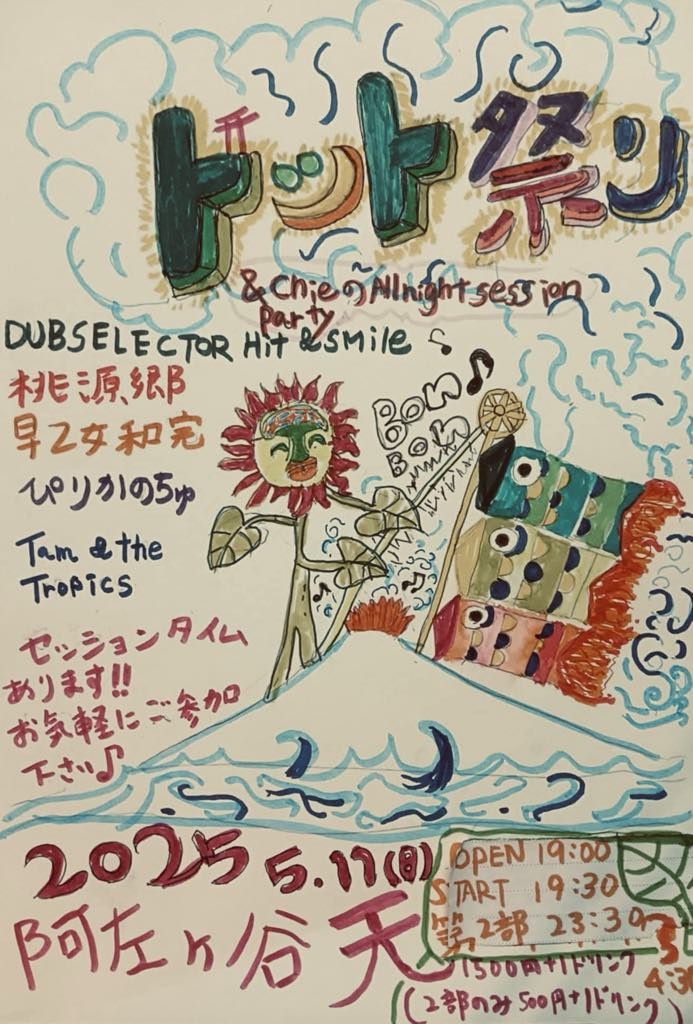 ドット祭り
& ChieのAllnight session
Party
DUBSELECTOR Hit & smile
桃源郷
早乙女和完
ぴりかのちゅ
Tam & the
Tropics
Bon
Bon
セッションタイム
あります!!
お気軽にご参加
下さい♪
2025 5.11(日)
阿左ヶ谷 天
OPEN 19:00
START 19:30
第2部 23:30
4:30
1500円+1ドリンク
(2部のみ500円+1ドリンク)